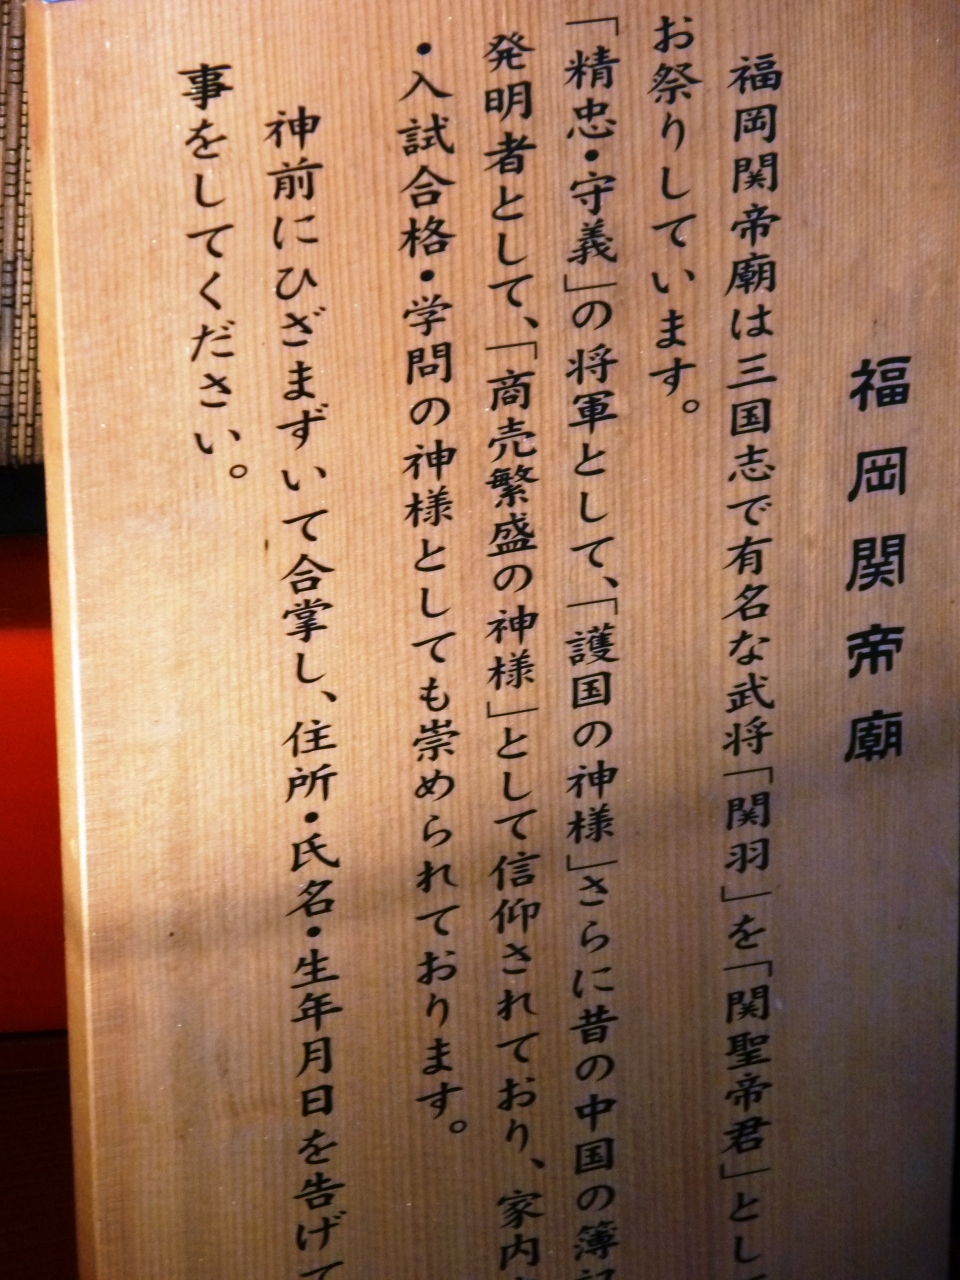 福岡関帝廟
福岡関帝廟は三国志で有名な武将「関羽」を「関聖帝君」とし
お祭りしています。
「精忠・守義」の将軍として、「護国の神様」さらに昔の中国の簿
発明者として、「商売繁盛の神様」として信仰されており、家内
・入試合格・学問の神様としても崇められております。
神前にひざまずいて合掌し、住所・氏名・生年月日を告げ
事をしてください。